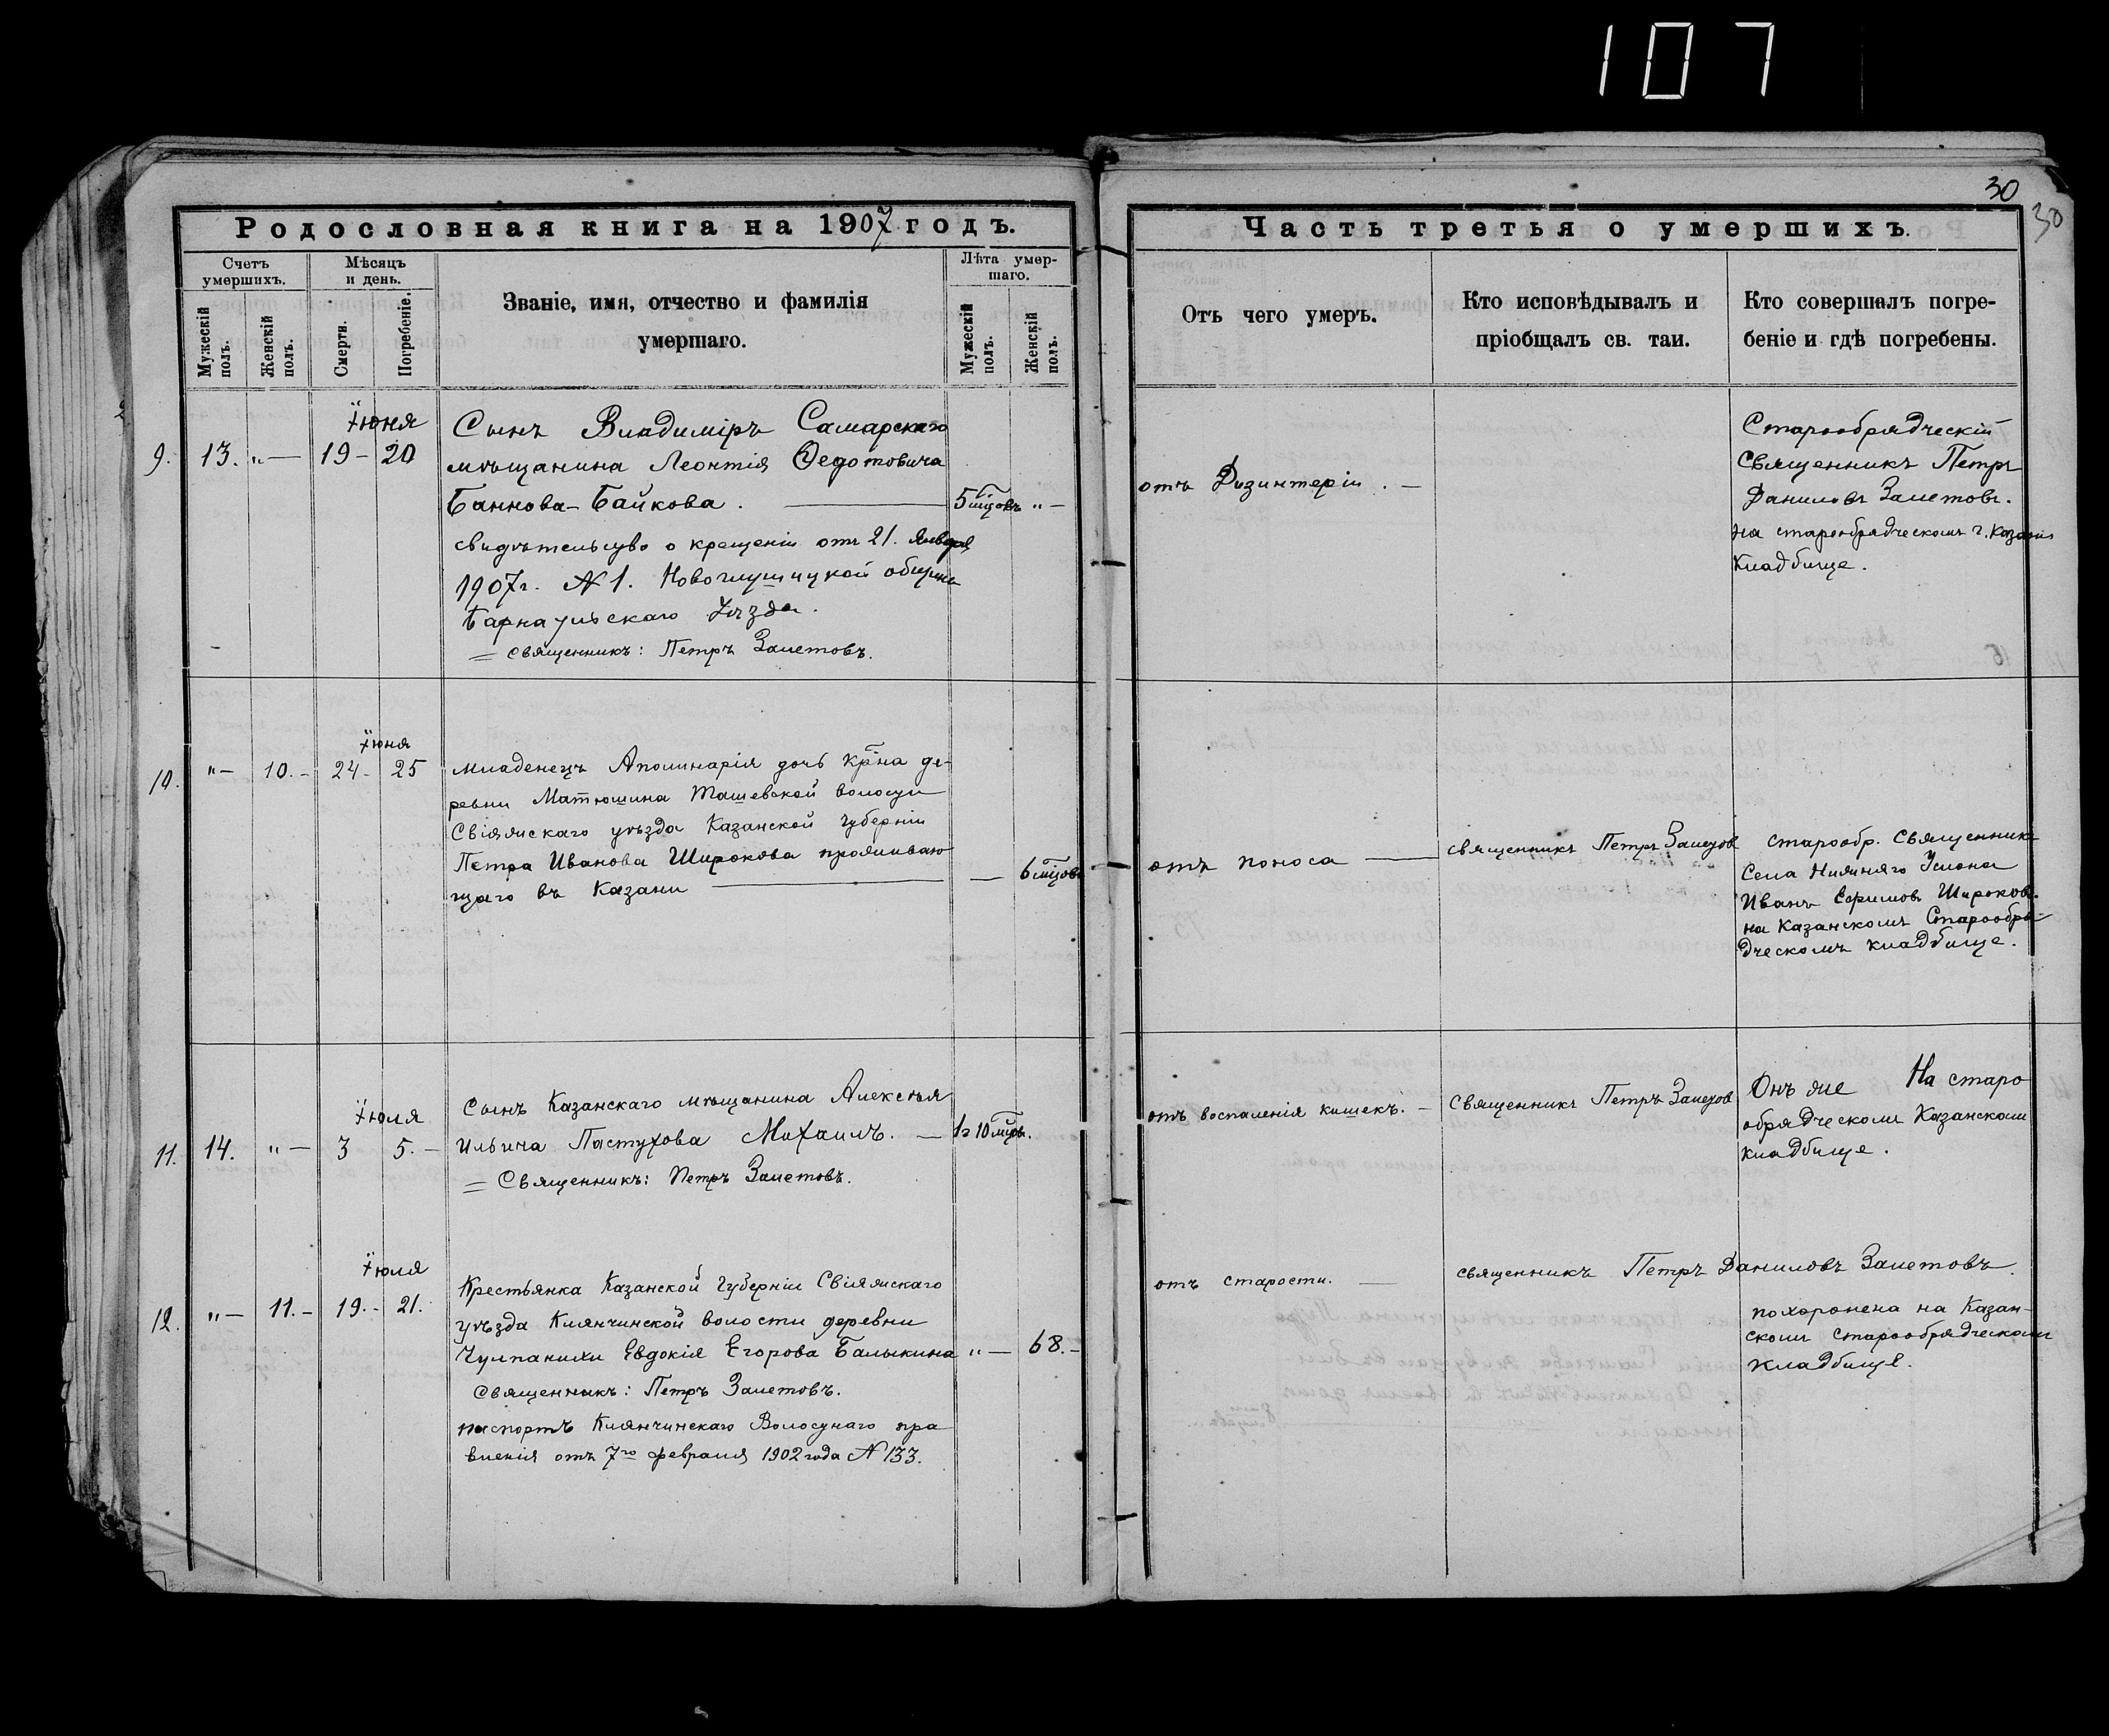 107
30
30
Родословная книга на 1907 годъ.
Счетъ умершихъ.
Мѣсяцъ и день.
Званіе, имя, отчество и фамилія
умершаго.
Лѣта умер-
шаго.
Мужескій полъ.
Женскій полъ.
Смерти.
Погребеніе.
Мужескій полъ.
Женскій полъ.
Часть третья о умершихъ.
Отъ чего умеръ.
Кто исповѣдывалъ и
пріобщалъ св. таи.
Кто совершалъ погре-
беніе и гдѣ погребены.
Іюня
9. 13. „— 19 - 20
Сынъ Владиміръ Самарскаго
мѣщанина Леонтія Ѳедотовича
Баннова-Байкова. 5 мцовъ „—
свидѣтельство о крещеніи отъ 21. Января
1907г. № 1. Новоглушицкой общины
Барнаульскаго Уѣзда.
= Священникъ: Петръ Залетовъ.
отъ Дизинтеріи. —
Старообрядческій
Священникъ Петръ
Даниловъ Залетовъ.
на старообрядческомъ г. Казани
Кладбище.
Іюня
10. „— 10. - 24 - 25
младенецъ Аполинарія дочь кр̃на де-
ревни Матюшина Ташевской волости
Свіяжскаго уѣзда Казанской губерніи
Петра Иванова Широкова прожываю
щаго въ Казани — 6 мцовъ
отъ поноса —
священникъ Петръ Залетов
старообр. Священникъ
Села Нижняго Услона
Иванъ Ефимовъ Широковъ.
на Казанскомъ Старообря-
дческомъ кладбище.
Іюля
11. 14. „— 3 5. -
Сынъ Казанскаго мѣщанина Алексѣя
Ильича Пастухова Михаилъ. — 1 г 10 мцовъ.
= Священникъ: Петръ Залетовъ.
отъ воспаленія кишекъ. -
Священникъ Петръ Залетов
Онъ же На старо
обрядческом Казанском
кладбище.
Іюля
12. „— 11. - 19. - 21.
Крестьянка Казанской Губерніи Свіяжскаго
уѣзда Клянчинской волости деревни
Чулпанихи Евдокія Егорова Балыкина „— 68. -
Священникъ: Петръ Залетовъ.
паспортъ Клянчинскаго Волостнаго пра
вленія отъ 7го февраля 1902 года № 133.
отъ старости. —
священникъ Петръ Даниловъ Залетовъ.
похоронена на Казан-
ском старообрядческом
кладбище.